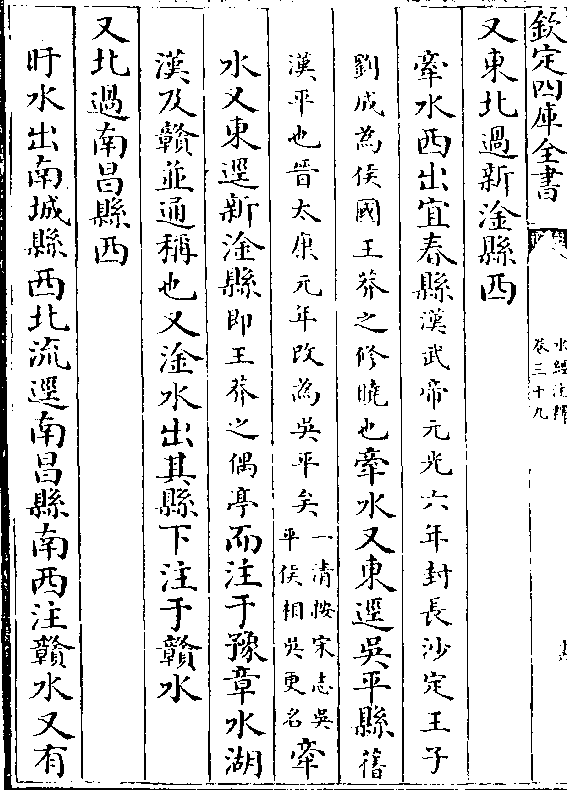 欽定四庫全書
水經注釋
卷三十九
又東北過新淦縣西
牽水西出宜春縣漢武帝元光六年封長沙定王子
劉成為侯國王莽之修曉也牽水又東逕吳平縣舊
漢平也晉太康元年改為吳平矣一清按宋志吳平侯相吳更名牽
水又東逕新淦縣即王莽之偶亭而注于豫章水湖
漢及贛並通稱也又淦水出其縣下注于贛水
又北過南昌縣西
盱水出南城縣西北流逕南昌縣南西注贛水又有